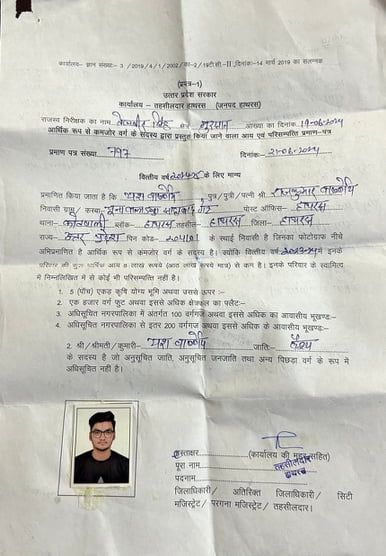 कार्यालय- ज्ञाप संख्या:- 3 /2019/4/1/2002/का-2/19टी.सी.-II,दिनांक:-14 मार्च 2019 का संलग्नक
(प्रपत्र-1)
उत्तर प्रदेश सरकार
कार्यालय - तहसीलदार हाथरस (जनपद हाथरस)
राजस्व निरीक्षक का नाम सिंह क्षेत्र मुरसान आख्या का दिनांक 19-06-2024
आर्थिक रूप से कमजोर वर्ग के सदस्य द्वारा प्रस्तुत किये जाने वाला आय एवं परिसम्पत्ति प्रमाण-पत्र
प्रमाण पत्र संख्या 797 दिनांक- 21-06-2024
वित्तीय वर्ष 2024-25 के लिए मान्य
प्रमाणित किया जाता है कि यश वार्ष्णेय पुत्र/पुत्री/पत्नी श्री राजकुमार वार्ष्णेय
निवासी ग्राम/कस्बा गेट पोस्ट ऑफिस- हाथरस
थाना- कोतवाली ब्लॉक- हाथरस तहसील हाथरस जिला- हाथरस
राज्य- उत्तर प्रदेश पिन कोड- 204101 के स्थाई निवासी है जिनका फोटोग्राफ नीचे
अभिप्रमाणित है आर्थिक रूप से कमजोर वर्ग के सदस्य है। क्योंकि वित्तीय वर्ष 2023-24 में इनके
परिवार की कुल वार्षिक आय 8 लाख रूपये (आठ लाख रूपये मात्र) से कम है। इनके परिवार के स्वामित्व
में निम्नलिखित में से कोई भी परिसम्पत्ति नहीं है।
1. 5 (पांच) एकड़ कृषि योग्य भूमि अथवा उससे ऊपर :-
2. एक हजार वर्ग फुट अथवा इससे अधिक क्षेत्रफल का फ्लैट:-
3. अधिसूचित नगरपालिका में अंतर्गत 100 वर्गगज अथवा इससे अधिक का आवासीय भूखण्ड:-
4. अधिसूचित नगरपालिका से इतर 200 वर्गगज अथवा इससे अधिक के आवासीय भूखण्ड:-
2. श्री/श्रीमती/कुमारी- यश वार्ष्णेय जाति- वैश्य
के सदस्य है जो अनुसूचित जाति, अनुसूचित जनजाति तथा अन्य पिछड़ा वर्ग के रूप में
अधिसूचित नहीं है।
हस्ताक्षर (कार्यालय की मुहर सहित)
पूरा नाम तहसीलदार
पदनाम हाथरस
जिलाधिकारी/ अतिरिक्त जिलाधिकारी/ सिटी
मजिस्ट्रेट/ परगना मजिस्ट्रेट/ तहसीलदार।